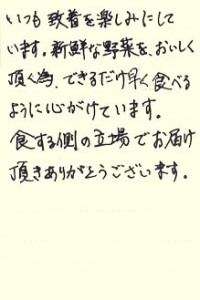 いつも 到着を楽しみにして
います。新鮮な野菜を、おいしく
頂く為、できるだけ早く食べる
ように心がけています。
食する側の立場でお届け
頂きありがとうございます。